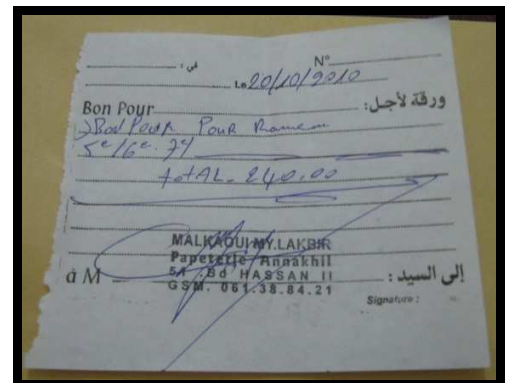 N° في :
Le 20/10/2010
Bon Pour ورقة لأجل:
Bon Pour Pour
5e/6e.
total - 240,00
MALKAOUI MY.LAKBIR
Papeterie Annakhil
51 .Bd HASSAN II
GSM. 061.38.84.21
à M إلى السيد :
Signature :